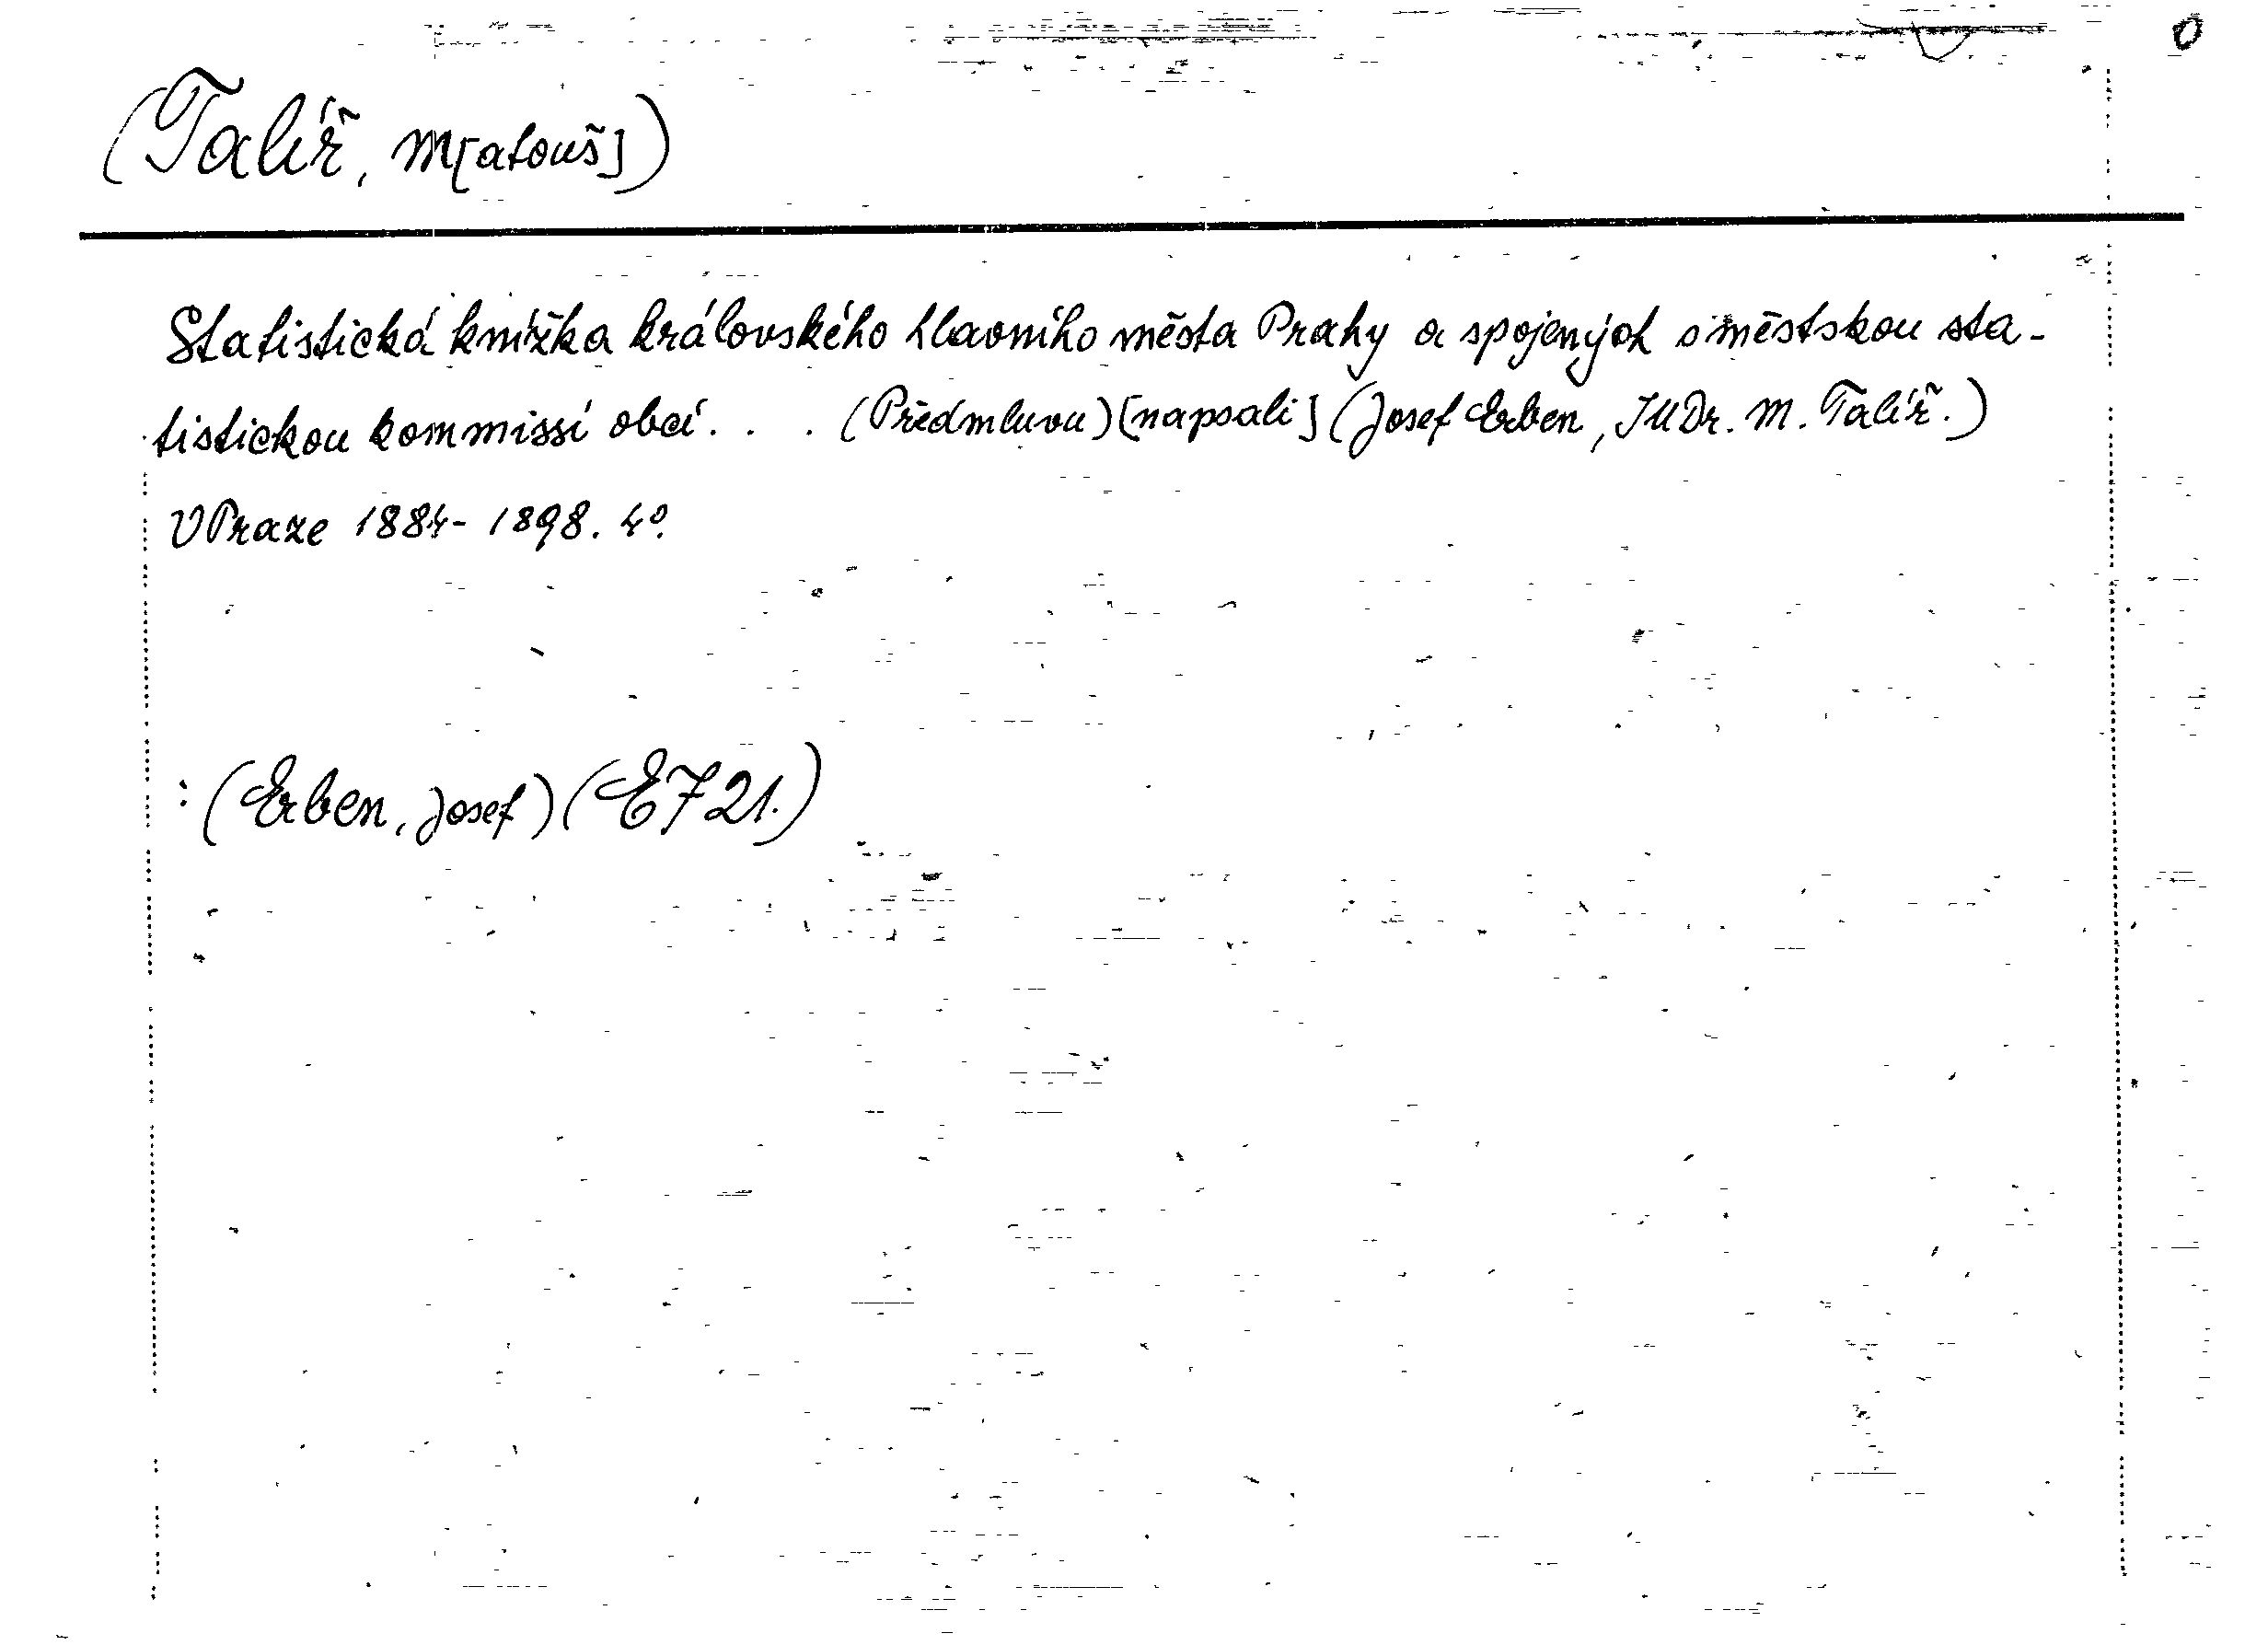 0
(Talíř, M[atouš])
Statistická knížka královského hlavního města Prahy a spojených s městskou sta-
tistickou kommissí obcí. . . (Předmluvu) [napsali] (Josef Erben, JUDr. M. Talíř.)
V Praze 1884-1898. 4°.
: (Erben, Josef) (E 721.)